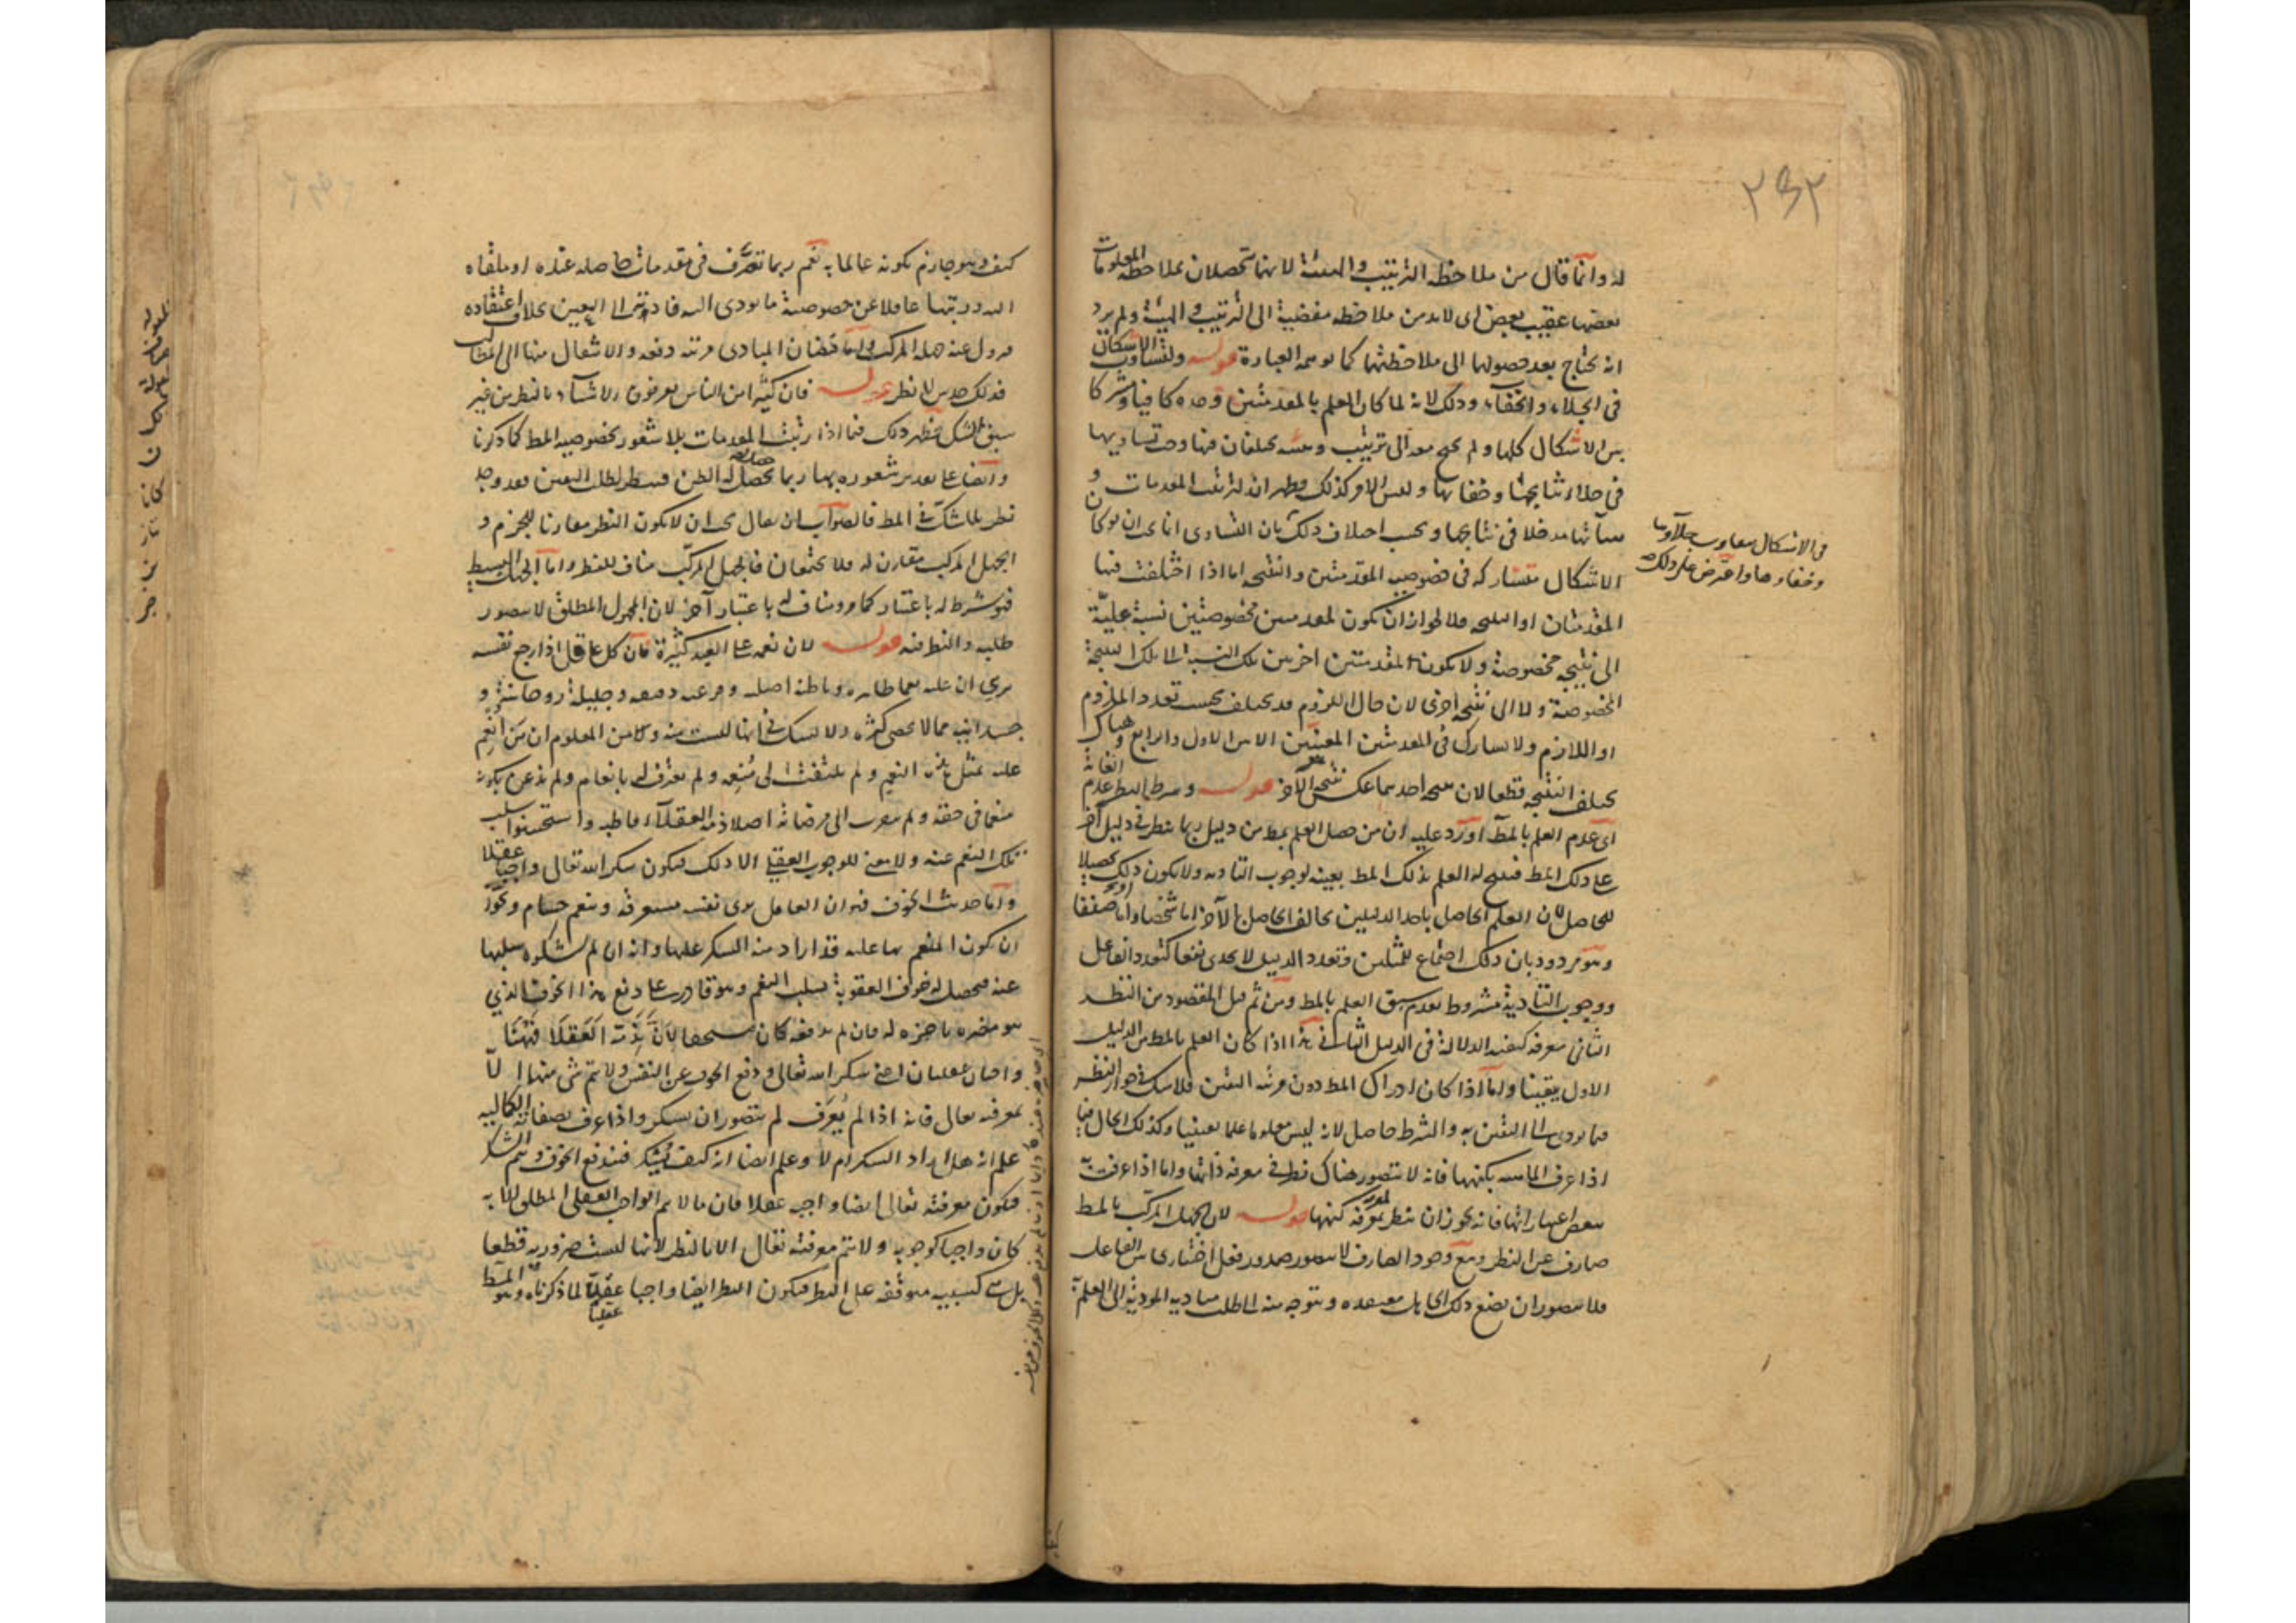 ٢٤٢
له وانما قال من ملاحظة الترتيب والهيئة لانهما تحصلان بملاحظة المعلومات
بعضها عقيب بعض اى لابد من ملاحظة مفضية الى الترتيب والهيئة ولم يرد
انه يحتاج بعد حصولهما الى ملاحظتهما كما يوهمه العبارة قوله ولتساوت الاشكال
فى الجلاء والخفاء وذلك لانه لما كان العلم بالمقدمتين وحده كافيا ومشتركا
بين الاشكال كلها ولم يحتج معه الى ترتيب وهيئة يختلفان فيها وجب تساويها
فى جلاء نتايجها وخفائها وليس الامر كذلك فظهر ان لترتيب المقدمات و
هيئاتها مدخلا فى نتايجها وبحسب اختلاف ذلك بان التساوى انما يجب ان لو كان
الاشكال متشاركة فى خصوصية المقدمتين والنتيجة اما اذا اختلفت فيها
المقدمتان او النتيجة فلا لجواز ان يكون لمقدمتين مخصوصتين نسبة عليّة
الى نتيجة مخصوصة ولا يكون لمقدمتين اخريين تلك النسبة الى تلك النتيجة
المخصوصة ولا الى نتيجة اخرى لان حال اللزوم قد يختلف بحسب تعدد الملزوم
او اللازم ولا تشارك فى المقدمتين المعينتين الا بين الاول والرابع وهناك
يختلف النتيجة قطعا لان نتيجة احدهما عكس نتيجة الآخر قوله وشرط النظر عدم الغاية
اى عدم العلم بالمط اورد عليه ان من حصل العلم بمط من دليل ربما ينظر فى دليل آخر
على ذلك المط فينتج له العلم بذلك المط بعينه لوجوب التادية ولا يكون ذلك تحصيلا
للحاصل لان العلم الحاصل باحد الدليلين يخالف الحاصل بالآخر اما شخصا واما صنفا
وهو مردود بان ذلك اجتماع للمثلين وتعدد الدليل لا يجدى نفعا كتعدد الفاعل
ووجوب التادية مشروط بعدم سبق العلم بالمط ومن ثم قيل المقصود من النظر
الثانى معرفة كيفية الدلالة فى الدليل الثانى هذا اذا كان العلم بالمط من الدليل
الاول يقينا واما اذا كان ادراك المط دون مرتبة اليقين فلا شك فى جواز النظر
فيما يودى الى اليقين به والشرط حاصل لانه ليس معلوما علما يقينيا وكذلك الحال فيما
اذا عرف الماهية بكنهها فانه لا يتصور هناك نظر فى معرفة ذاتها واما اذا عرفت
ببعض اعتباراتها فانه يجوز ان ينظر لمعرفة كنهها قوله لان الجهل المركب بالمط
صارف عن النظر ومع وجود الصارف لا يتصور صدور فعل اختيارى من الفاعل
فلا يتصور ان يضع ذلك الجاهل معتقده ويتوجه منه الى طلب مباديه المودية الى العلم به
فى الاشكال
وخفاءها واعترض على ذلك
كيف وهو جازم بكونه عالما به نعم ربما تصرف فى مقدمات حاصلة عنده او ملقاه
اليه ورتبها غافلا عن خصوصية ما يودى اليه فادته الى اليقين بخلاف اعتقاده
فزول عنه جهله المركب واما فيضان المبادى مرتبة دفعة والانتقال منها الى المطالب
فذلك حدس لا نظر قوله فان كثيرا من الناس يعرفون الاشياء بالنظر من غير
سبق الشك يظهر ذلك فيما اذا رتبت المقدمات بلا شعور بخصوصية المط كما ذكرنا
وايضا على تقدير شعوره بها ربما يحصل له الظن فينظر لطلب اليقين فقد وجد
نظر بلا شك فى المط فالصواب ان يقال يجب ان لا يكون النظر مقارنا للجزم و
الجهل المركب مقارن له فلا يجتمعان فالجهل المركب مناف للنظر واما الجهل البسيط
فهو شرط له باعتبار كما مر ومناف له باعتبار آخر لان المجهول المطلق لا يتصور
طلبه والنظر فيه قوله لان نعمه على العبد كثيرة فان كل عاقل اذا راجع نفسه
يرى ان عليه نعما ظاهرة وباطنة اصلية وفرعية دقيقة وجليلة روحانية و
جسدانية مما لا يحصى كثرة ولا يشك فى انها ليست منه ومن المعلوم ان من انعم
عليه بمثل هذه النعم ولم يلتفت الى منعمه ولم يعترف له بانعام ولم يذعن بكونه
منعما فى حقه ولم يتقرب الى مرضاته اصلا ذمه العقلاء قاطبة واستحسنوا سلب
تلك النعم عنه ولا معنى للوجوب العقلى الا ذلك فيكون شكر الله تعالى واجبا عقلا
واما حديث الخوف فهو ان العاقل يرى نفسه مستغرقة بنعم جسام ويجوز
ان يكون المنعم بها عليه قد اراد منه الشكر عليها وانه ان لم يشكره سلبها
عنه فيحصل له خوف العقوبة بسلب النعم وهو قادر على دفع هذا الخوف الذى
هو مضرة ناجزة له فان لم يدفعه كان مستحقا لان يذمه العقلاء فههنا
واجبان عقليان اعنى شكر الله تعالى ودفع الخوف عن النفس ولا يتم شئ منهما الا
بمعرفته تعالى فانه اذا لم يعرف لم يتصور ان يشكر واذا عرف بصفاته الكمالية
علم انه هل اراد الشكر ام لا وعلم ايضا انه كيف يشكر فيندفع الخوف ويتم الشكر
فيكون معرفته تعالى ايضا واجبة عقلا فان ما لا يتم الواجب العقلى المطلق الا به
كان واجبا كوجوبه ولا يتم معرفته تعالى الا بالنظر لانها ليست ضرورية قطعا
بل هى كسبية متوقفة على النظر فيكون النظر ايضا واجبا عقليا لما ذكرناه وهو المط